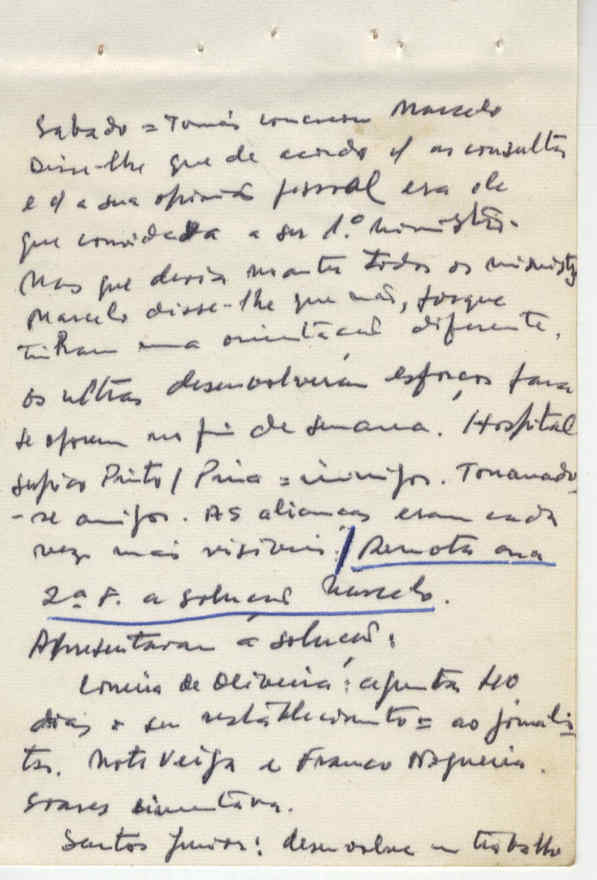 Sabado = Tomás convocou Marcelo
Disse-lhe que de acordo c/ as consultas
e c/ a sua opinião pessoal era ele
que convidada a ser 1.º ministro.
Mas que devia manter todos os ministros
Marcelo disse-lhe que não, porque
tinham uma orientação diferente.
os ultras desenvolveram esforços para
se oporem no fim de semana. Hospital
Supico Pinto / Pina = inimigos. Tornando-
-se amigos. As alianças eram cada
vez mais visíveis. / Remota era
2ª F. a solução Marcelo.
Apresentaram a solução:
Correia de Oliveira: aguentar 40
dias o seu restabelecimento = ao jornalis-
tas. Mota Veiga e Franco Nogueira.
Soares
Santos Junior: desenvolve um trabalho